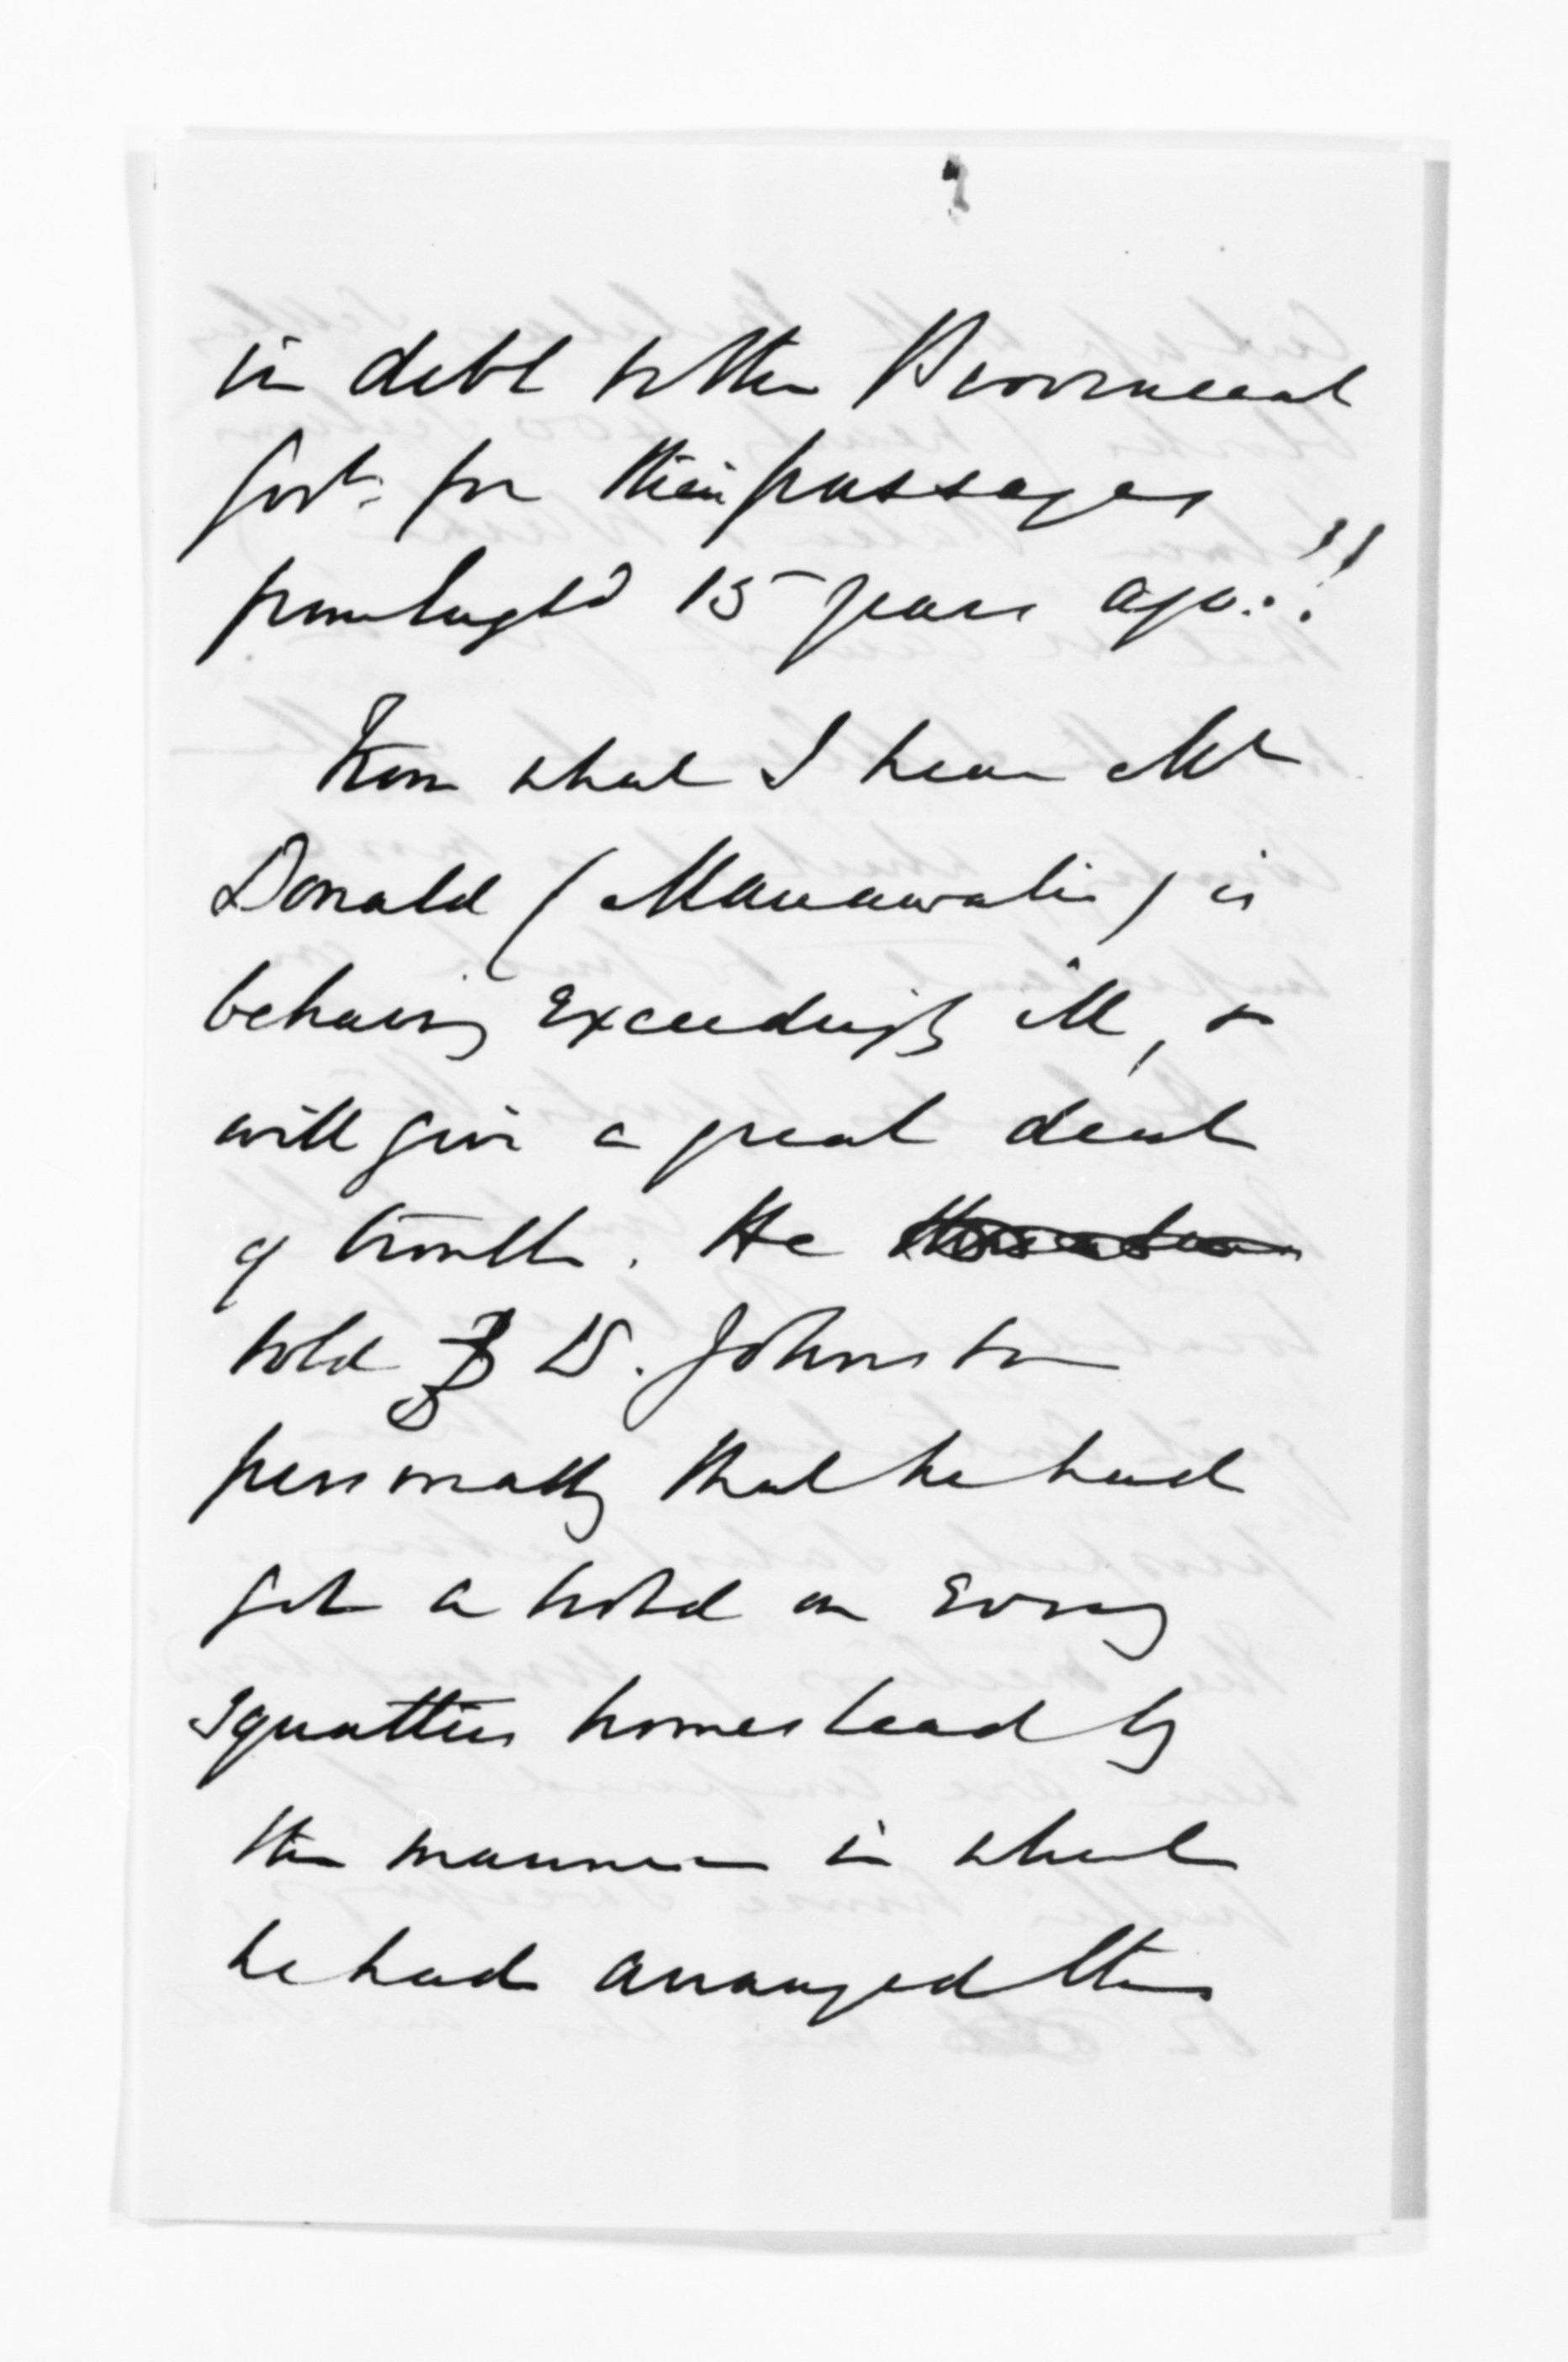 in debt to the Provincial
Govt. for their passages
from Engld 15 years ago!!
From what I hear Mc
Donald (Manawatu) is
behaving exceedingly ill, &
will give a great deal
of trouble. He
told D. Johnston
personally that he had
got a hold on every
squatters homestead by
the manner in which
he had arranged the